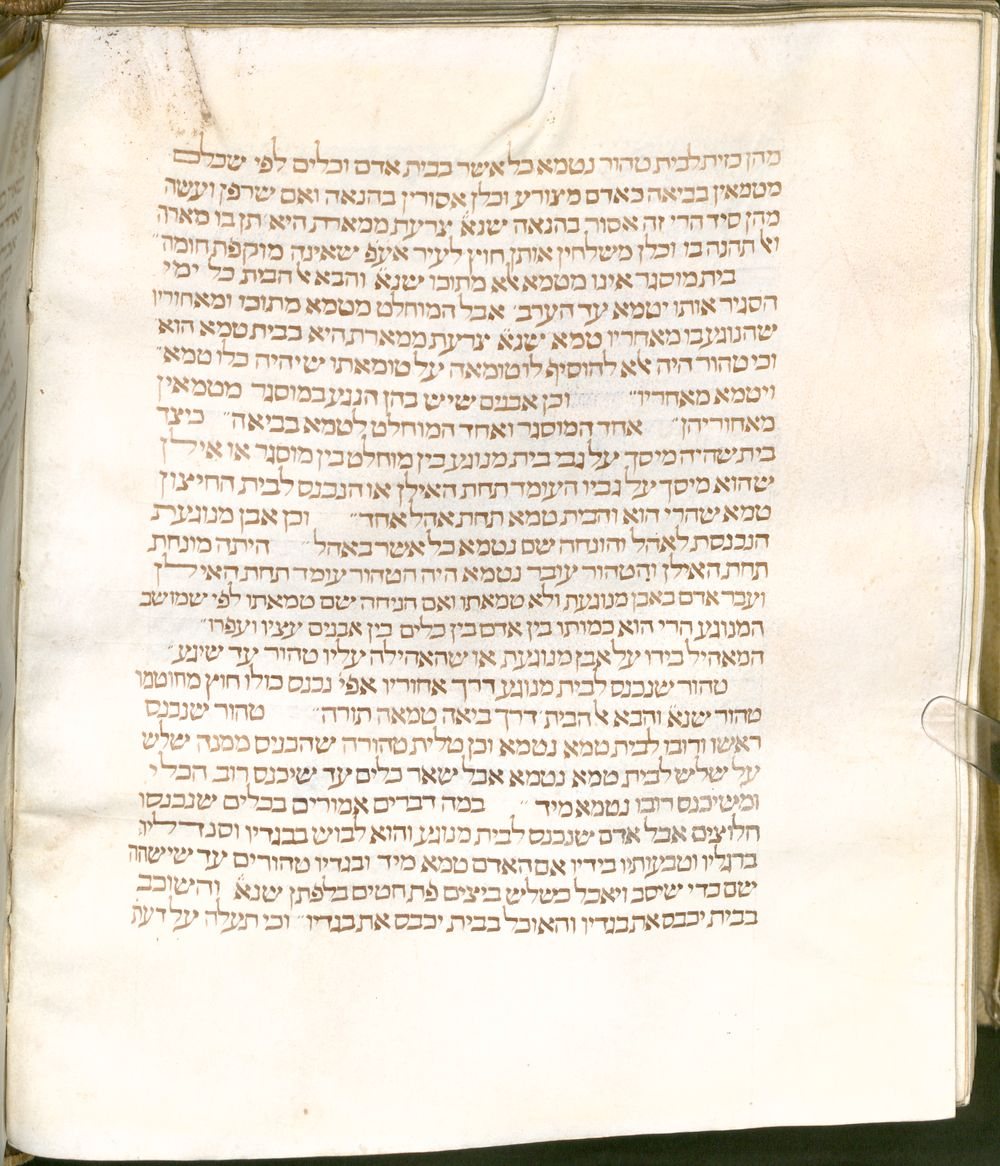 מהן כזית לבית טהור נטמא כל אשר בבית אדם וכלים לפי שכלם
מטמאין בביאה כאדם מצורע וכלן אסורין בהנאה ואם שרפן ועשה
מהן סיד הרי זה אסור בהנאה שנא׳ צרעת ממארת היא תן בו מארה
ול תהנה בו וכלן משלחין אותן חוץ לעיר אעפ׳ שאינה מוקפת חומה״
בית מוסגר אינו מטמא אלא מתוכו שנא׳ והבא אל הבית כל ימי
הסגיר אותו יטמא עד הערב׳ אבל המוחלט מטמא מתוכו ומאחוריו
שהנוגע בו מאחריו טמא שנא׳ צרעת ממארת היא בבית טמא הוא׳
וכי טהור היה אלא להוסיף לו טומאה על טומאתו שיהיה כלו טמא״
ויטמא מאחריו״ וכן אבנים שיש בהן הנגע במוסגר מטמאין
מאחוריהן״ אחד המוסגר ואחד המוחלט לטמא בביאה״ כיצד
בית שהיה מיסך על גבי בית מנוגע בין מוחלט בין מוסגר או אילן
שהוא מיסך על גביו העומד תחת האילן או הנכנס לבית החיצון
טמא שהרי הוא והבית טמא תחת אהל אחד״ וכן אבן מנוגעת
הנכנסת לאהל והונחה שם נטמא כל אשר באהל״ היתה מונחת
תחת האילן והטהור עובר נטמא היה הטהור עומד תחת האילן
ועבר אדם באבן מנוגעת ולא טמאתו ואם הניחה שם טמאתו לפי שמושב
המנוגע הרי הוא כמותו בין אדם בין כלים בין אבנים עציו ועפרו״
המאהיל בידו על אבן מנוגעת או שהאהילה עליו טהור עד שיגע״
טהור שנכנס לבית מנוגע דרך אחוריו אפי׳ נכנס כולו חוץ מחוטמו
טהור שנא׳ והבא אל הבית דרך ביאה טמאה תורה״ טהור שנכנס
ראשו ורובו לבית טמא נטמא וכן טלית טהורה שהכניס ממנה שלש
על שלש לבית טמא נטמא אבל שאר כלים עד שיכנס רוב הכלי
ומשיכנס רובו נטמא מיד״ במה דברים אמורים בכלים שנכנסו
חלוצים אבל אדם שנכנס לבית מנוגע והוא לבוש בבגדיו וסנדליו
ברגליו וטבעותיו בידיו אם האדם טמא מיד ובגדיו טהורים עד שישהה
שם כדי שיסב ויאכל כשלש ביצים פת חטים בלפתן שנא׳ והשוכב
בבית יכבס את בגדיו והאוכל בבית יכבס את בגדיו״ וכי תעלה על דעת